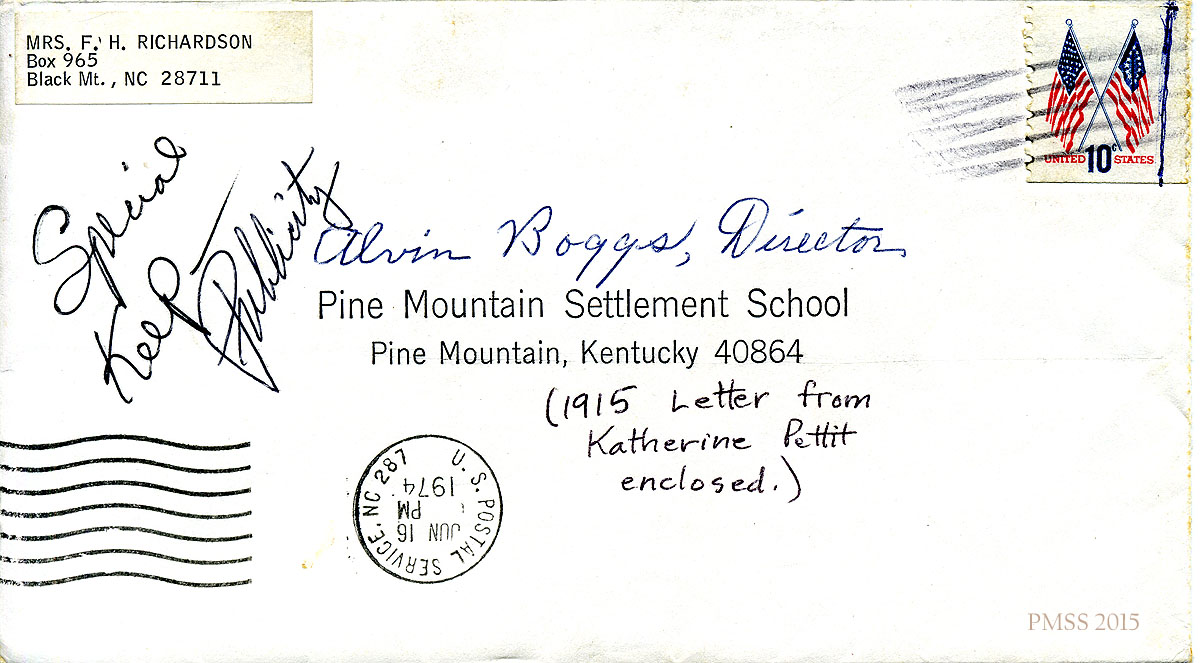 MRS. F. H. RICHARDSON
Box 965
Black Mt., NC 28711
UNITED 10c STATES
Special
Keep
Publicity
Alvin Boggs, Director
Pine Mountain Settlement School
Pine Mountain, Kentucky 40864
(1915 Letter from
Katherine Pettit
enclosed.)
U. S. POSTAL SERVICE, NC 287
JUN 16
PM
1974
PMSS 2015